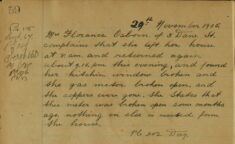 29th November 1906
Mrs Florence Osborn of 2 Dane St
complains that she left her house
at 8 am and returned again
about 9.15 pm this evening, and found
her kitchen window broken and
the gas meter broken open, and
the coppers all gone. She states that
the meter was broken open some months
ago nothing on else is missed from
the house.
PC 202 Day